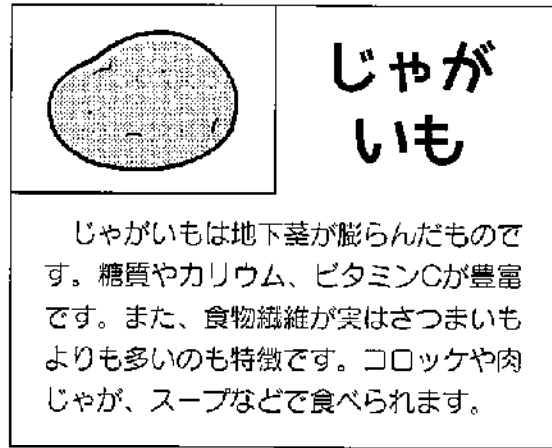 じゃが
いも
じゃがいもは地下茎が膨らんだもので
す。糖質やカリウム、ビタミンCが豊富
です。また、食物繊維が実はさつまいも
よりも多いのも特徴です。コロッケや肉
じゃが、スープなどで食べられます。